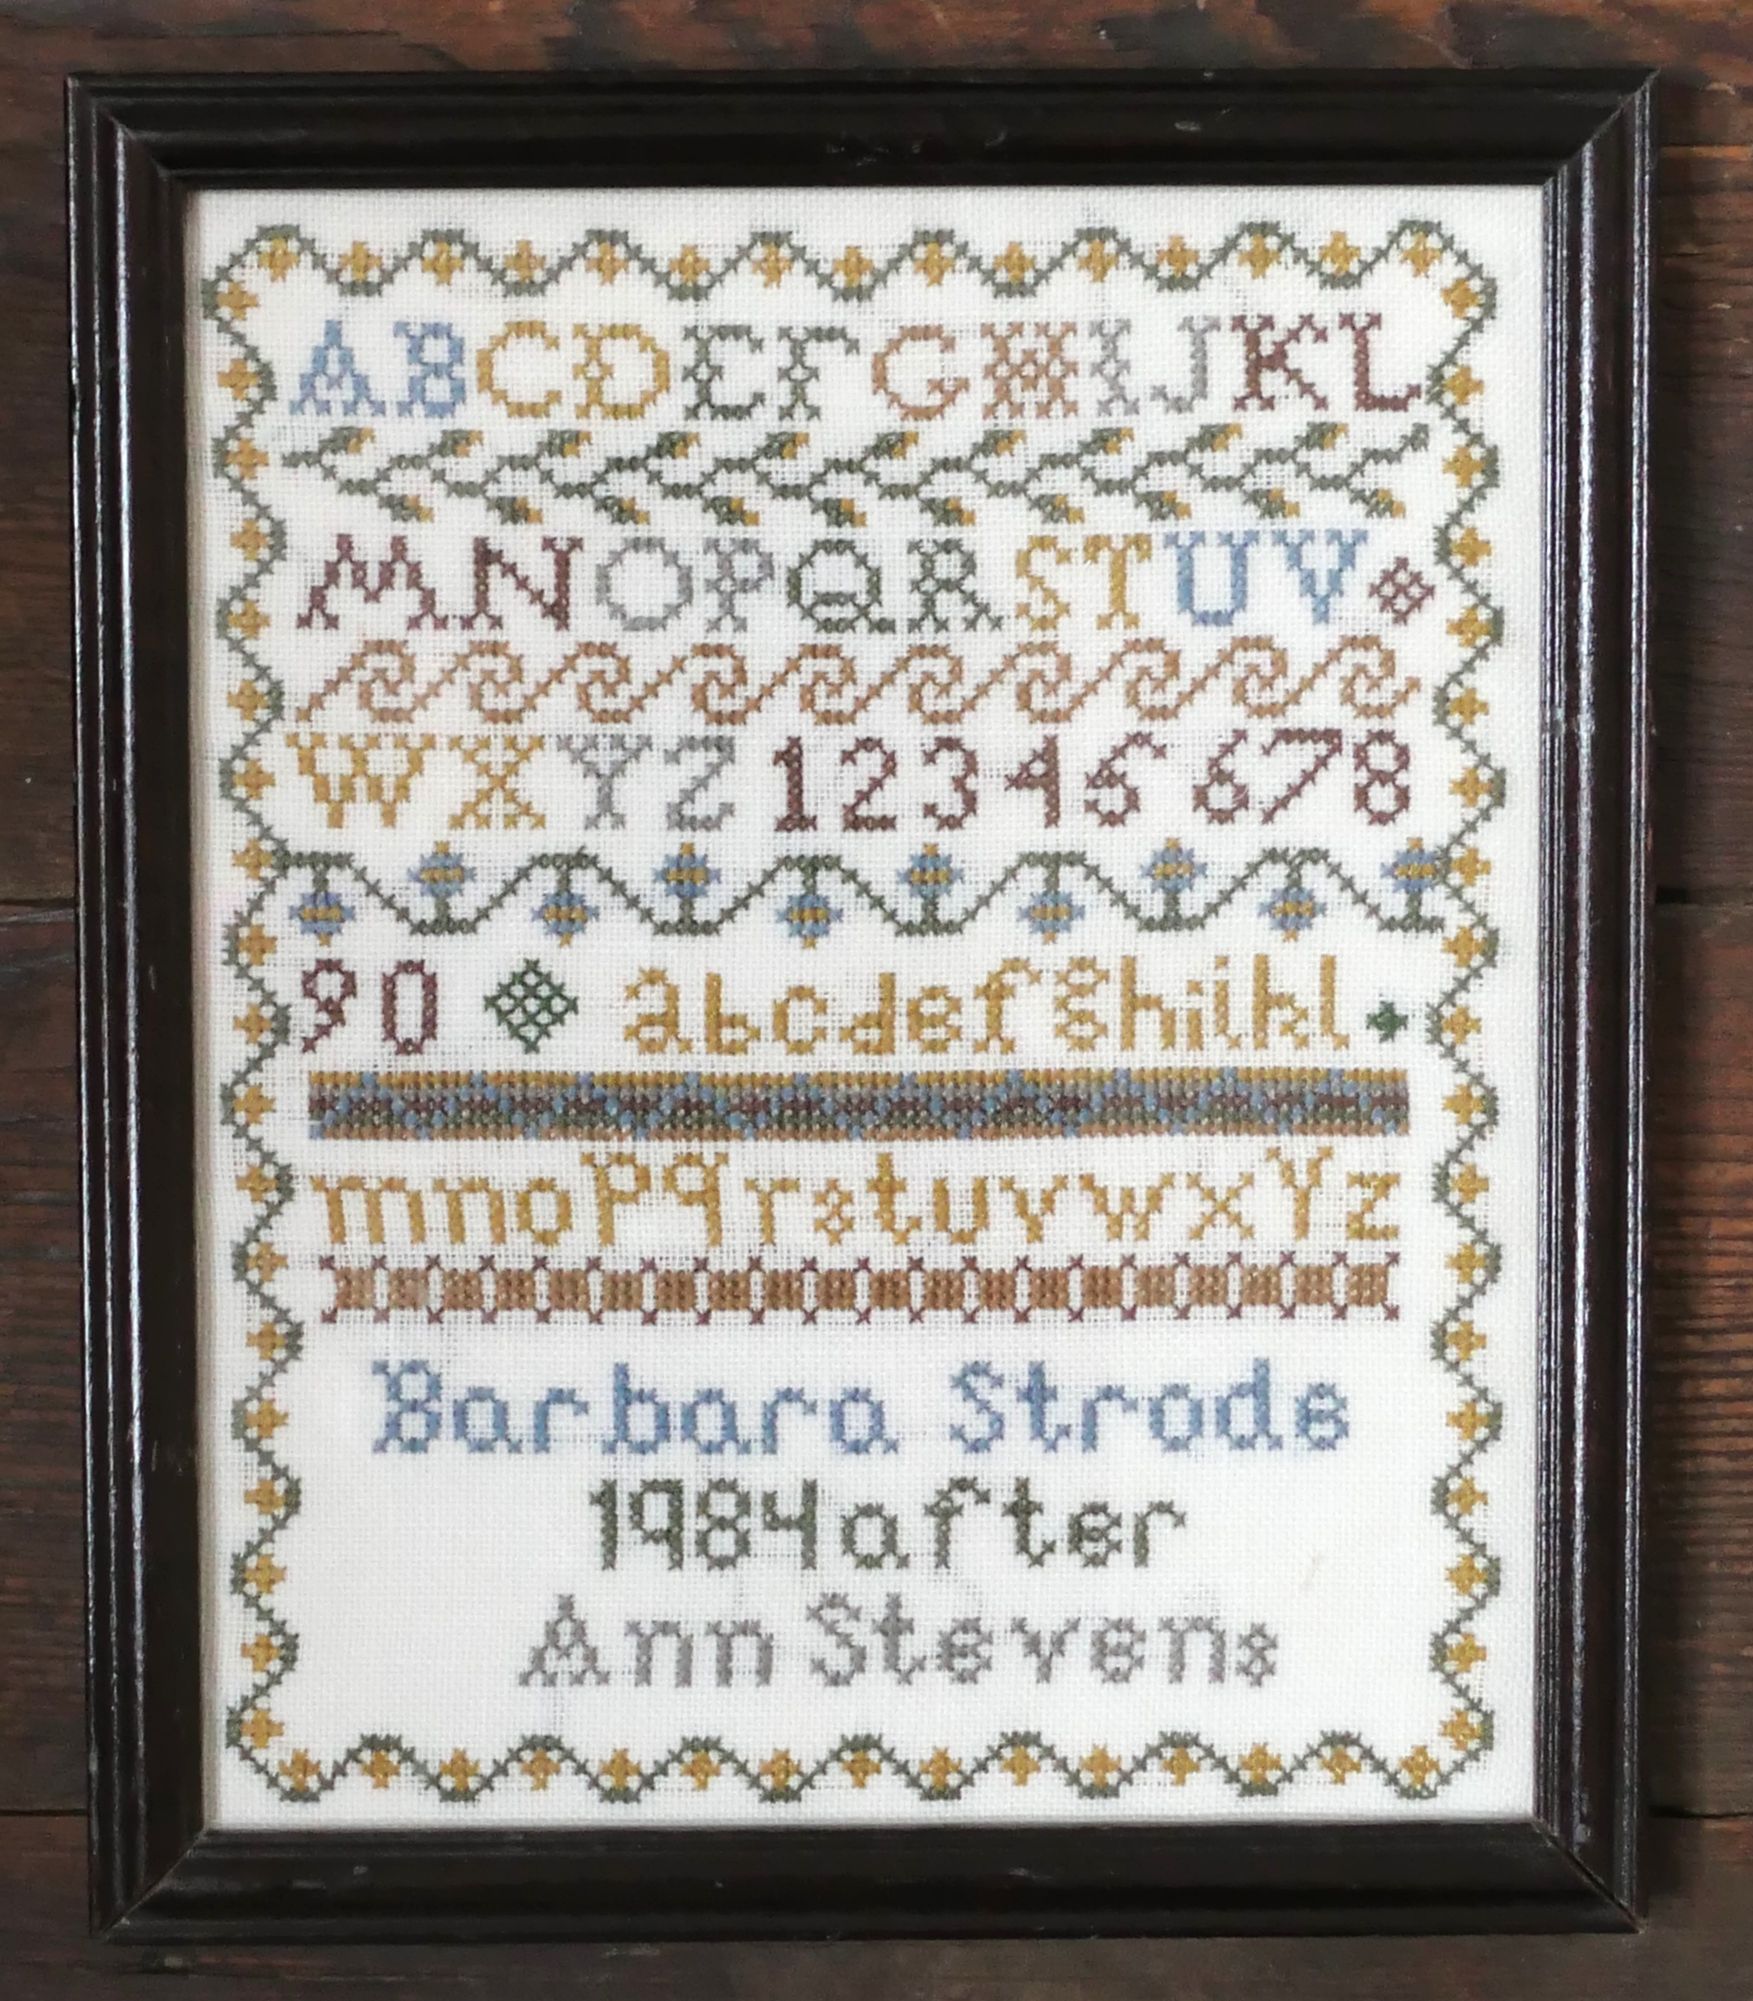 ABCDEFGHIJKL
MNOPQRSTUV
WXYZ 12345678
90 abcdefghijkl
mnopqrstuvwxyz
Barbara Strode
1984 after
Ann Stevens